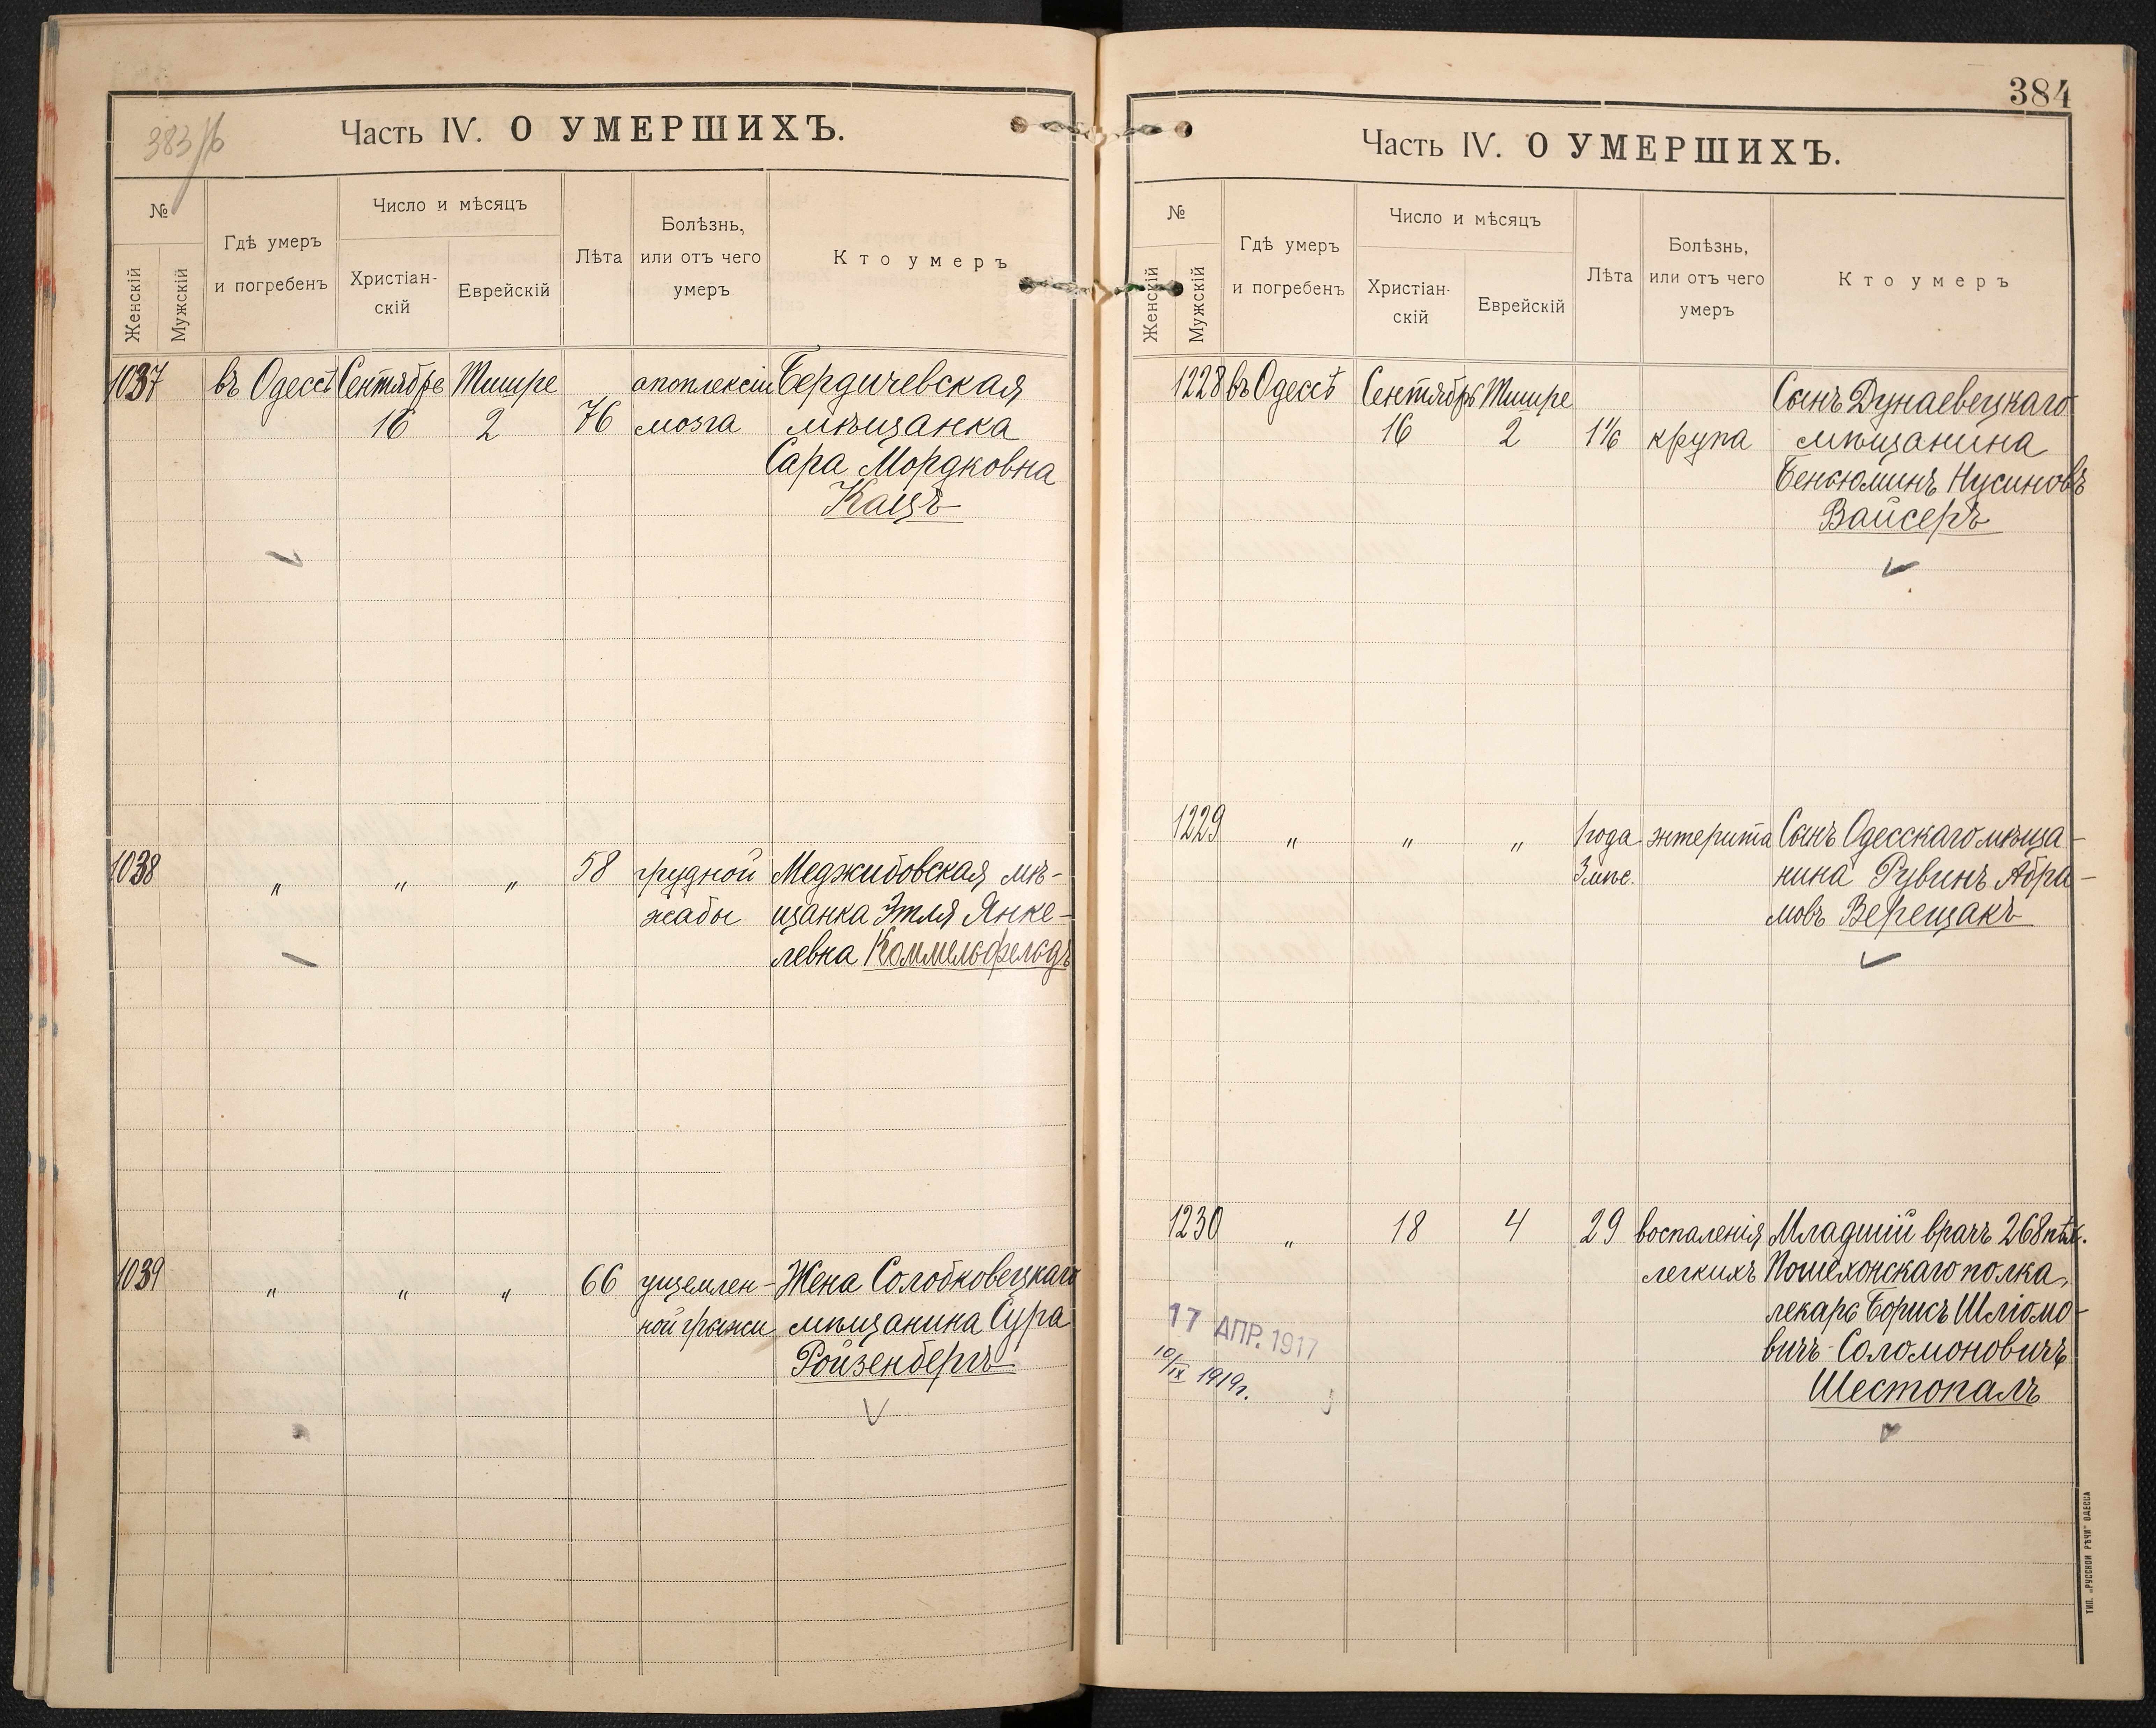 383/б
Часть IV. О УМЕРШИХЪ.
№
Женскій
Мужскій
Гдѣ умеръ
и погребенъ
Число и мѣсяцъ
Христіан-
скій
Еврейскій
Лѣта
Болѣзнь,
или отъ чего
умеръ
Кто умеръ
1037 въ Одессѣ Сентябрь Тишре апоплексіи Бердичевская
16 2 76 мозга мѣщанка
Сара Мордковна
Кацъ
1038 " " " 58 грудной Меджибовская мѣ-
жабы щанка Этля Янке-
левна Коммельфельдъ
1039 " " " 66 ущемлен- Жена Солобковецкаго
ной грыжи мѣщанина Сура
Ройзенбергъ
384
Часть IV. О УМЕРШИХЪ.
№
Женскій
Мужскій
Гдѣ умеръ
и погребенъ
Число и мѣсяцъ
Христіан-
скій
Еврейскій
Лѣта
Болѣзнь,
или отъ чего
умеръ
Кто умеръ
1228 въ Одессѣ Сентябрь Тишре Сынъ Дунаевецкаго
16 2 1 1/6 крупа мѣщанина
Бенюминъ Нусиновъ
Вайсеръ
1229 " " " 1 года энтерита Сынъ Одесскаго мѣща-
3 мѣс. нина Рувинъ Абра-
мовъ Верещакъ
1230 " 18 4 29 воспаленія Младшій врачъ 268 пѣх.
легкихъ Пошехонскаго полка,
лекарь Борисъ Шліомо-
вичъ-Соломоновичъ
Шестопалъ
17 АПР. 1917
10/IX 1919г.
ТИП. „РУССКОЙ РѢЧИ" ОДЕССА